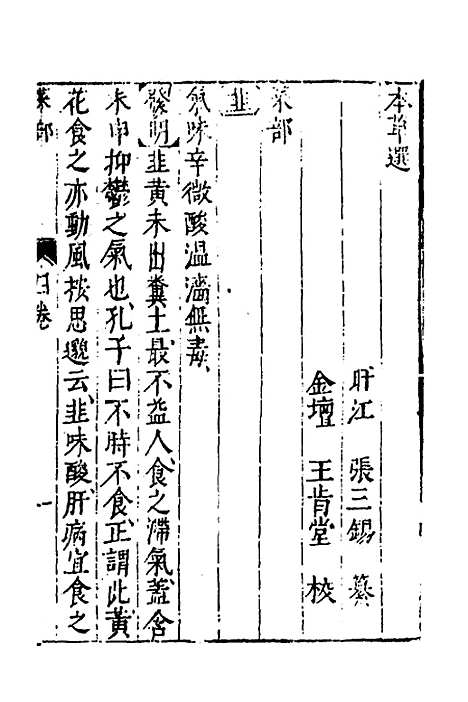 本草選
盱江 張三錫 纂
金壇 王肯堂 校
菜部
韭
氣味辛微酸溫濇無毒
發明韭黃未出糞土最不益人食之滯氣蓋含
未申抑鬱之氣也孔子曰不時不食正謂此黃
花食之亦動風按思邈云韭味酸肝病宜食之
菜部 四卷 一